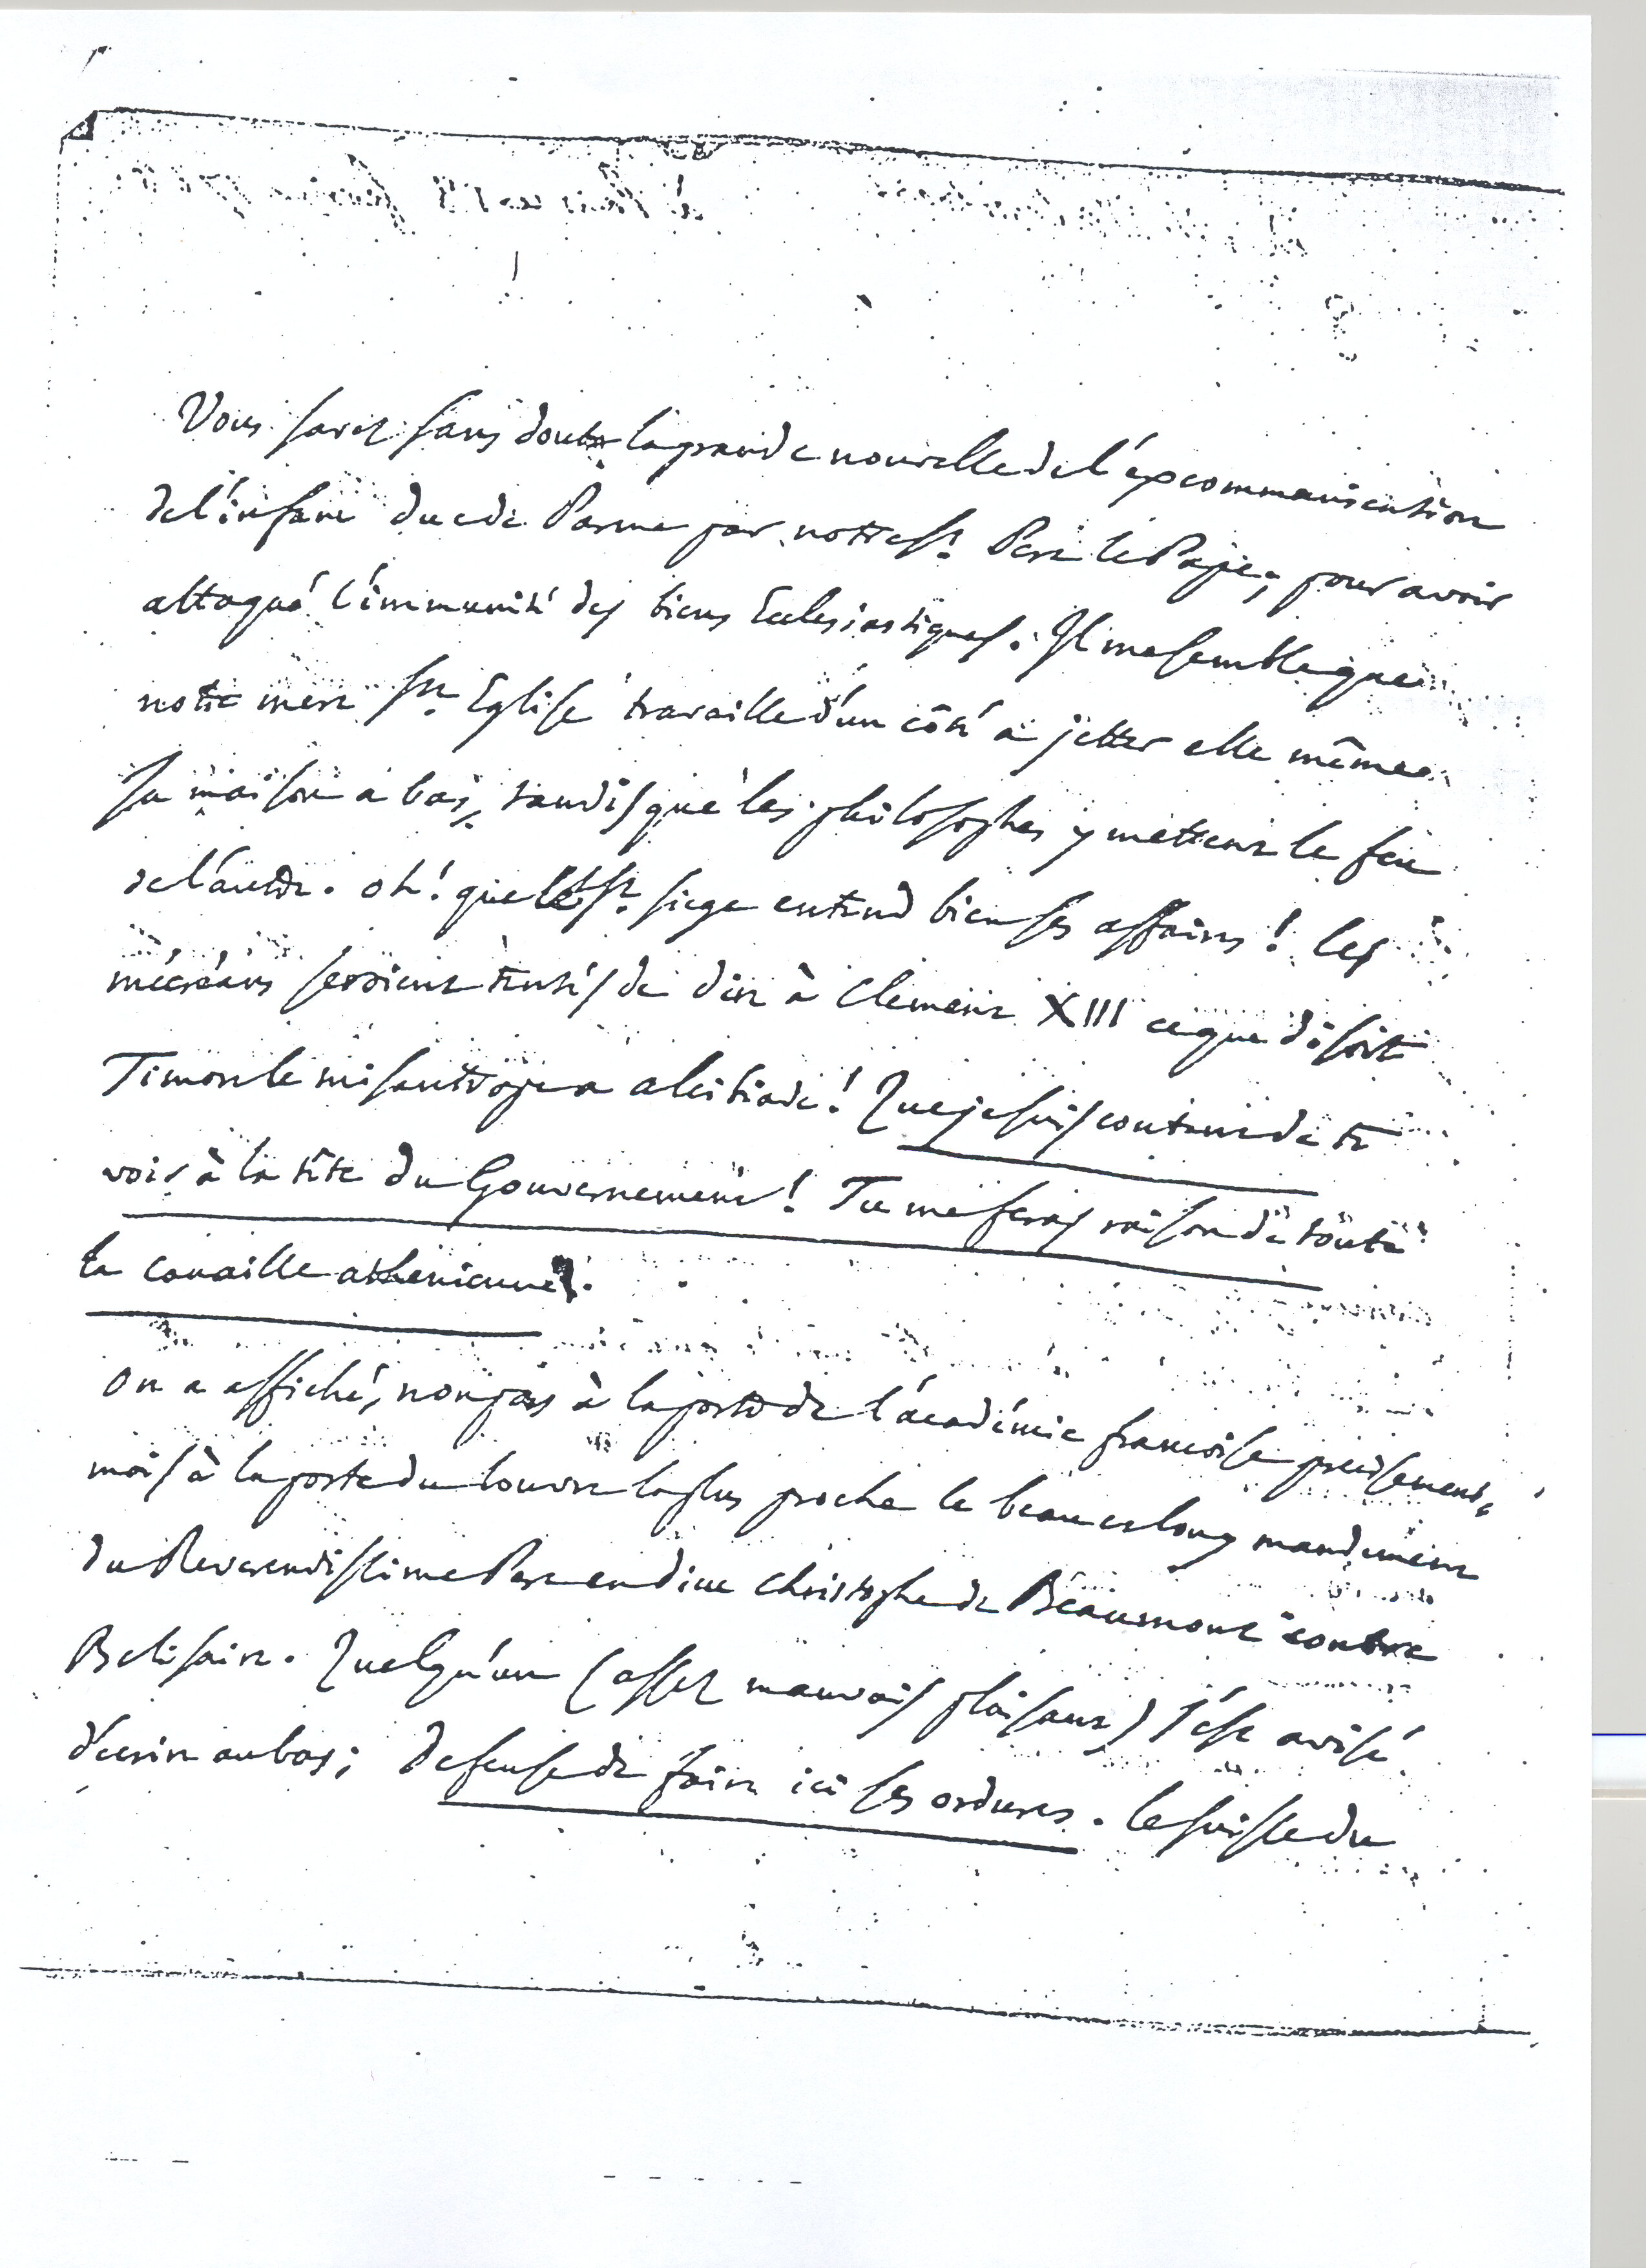 Vous savez sans doute la grande nouvelle de l'excommunication
de l'infant duc de Parme par notre st. Pere le Pape, pour avoir
attaqué l'immunité des biens Ecclesiastiques. Il me semble que
notre mere ste. Eglise travaille d'un côté a jetter elle même
sa maison a bas, tandis que les philosophes y mettent le feu
de l'autre. oh! que le st. siege entend bien ses affaires! les
mécréans seroient tentés de dire à Clement XIII ce que disoit
Timon le misantrope a alcibiade! Que je suis content de te
voir à la tête du Gouvernement! Tu me feras raison de toute
la canaille athenienne.
on a affiché, non pas à la porte de l'académie françoise precisement,
mais à la porte du louvre la plus proche le beau et long mandement
du Reverendissime Pere en dieu Christophe de Beaumont contre
Belisaire. Quelqu'un (assez mauvais plaisant) s'est avisé
d'ecrire au bas; Defense de faire ici ses ordures. le suisse du